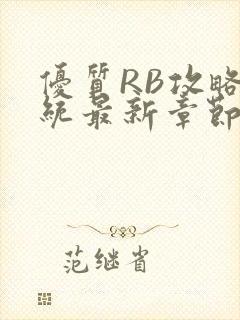 優質RB攻略
統最新章節
范继省